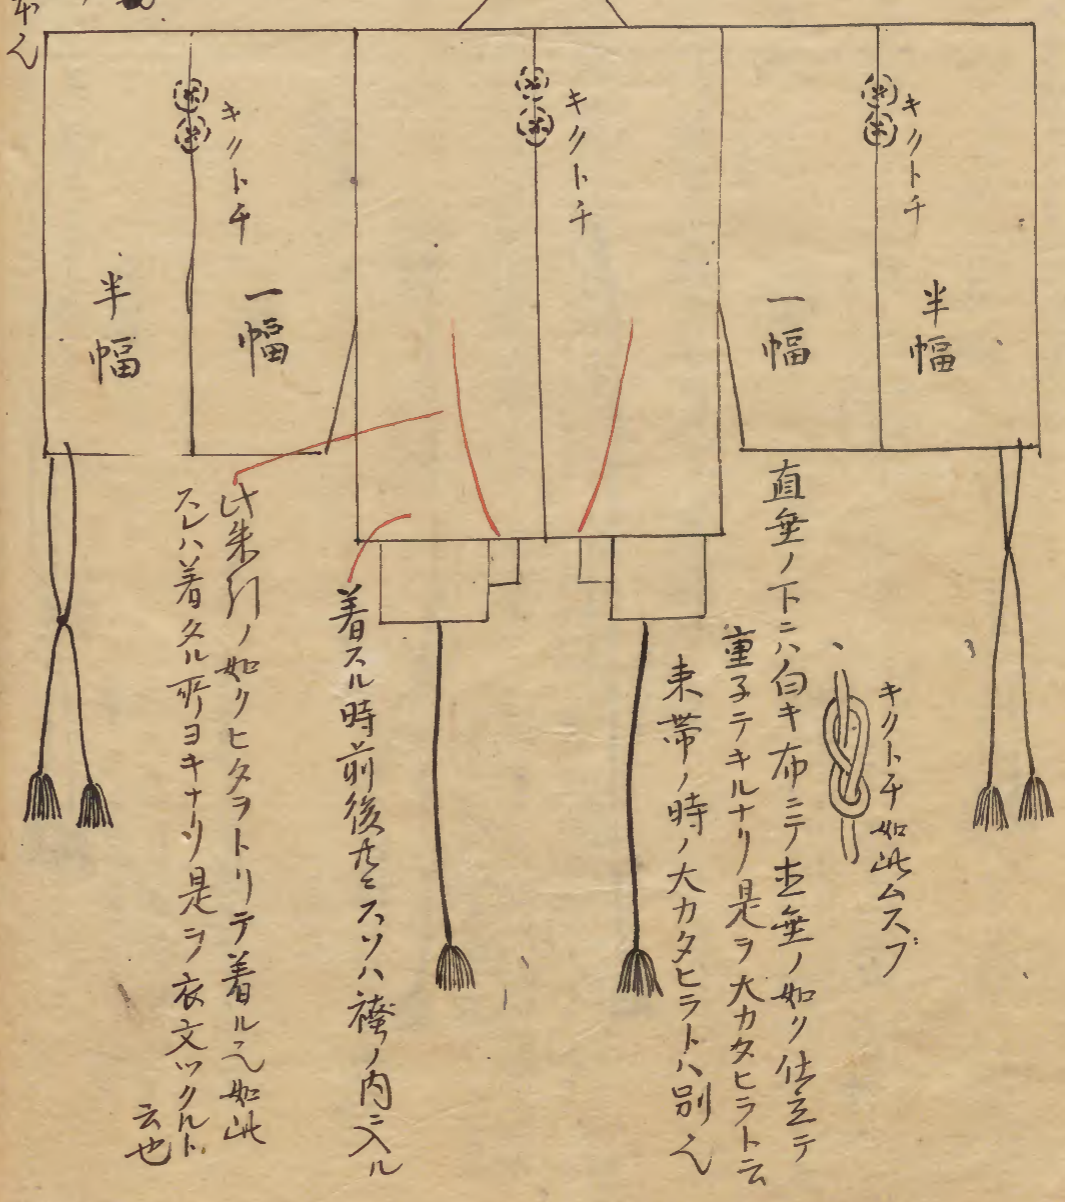 キクトチ
半幅
一幅
キクトチ
キクトチ
一幅
半幅
キクトチ如此ムスブ
直垂ノ下ニハ白キ布ニテ直垂ノ如ク仕立テ
重子テキルナリ是ヲ大カタヒラト云
束帯ノ時ノ大カタヒラトハ別也
着スル時前後共ニスソハ袴ノ内ニ入ル
此朱引ノ如クヒタヲトリテ着ル也如此
スレハ着タル所ヨキナリ是ヲ衣文ツクルト
云也